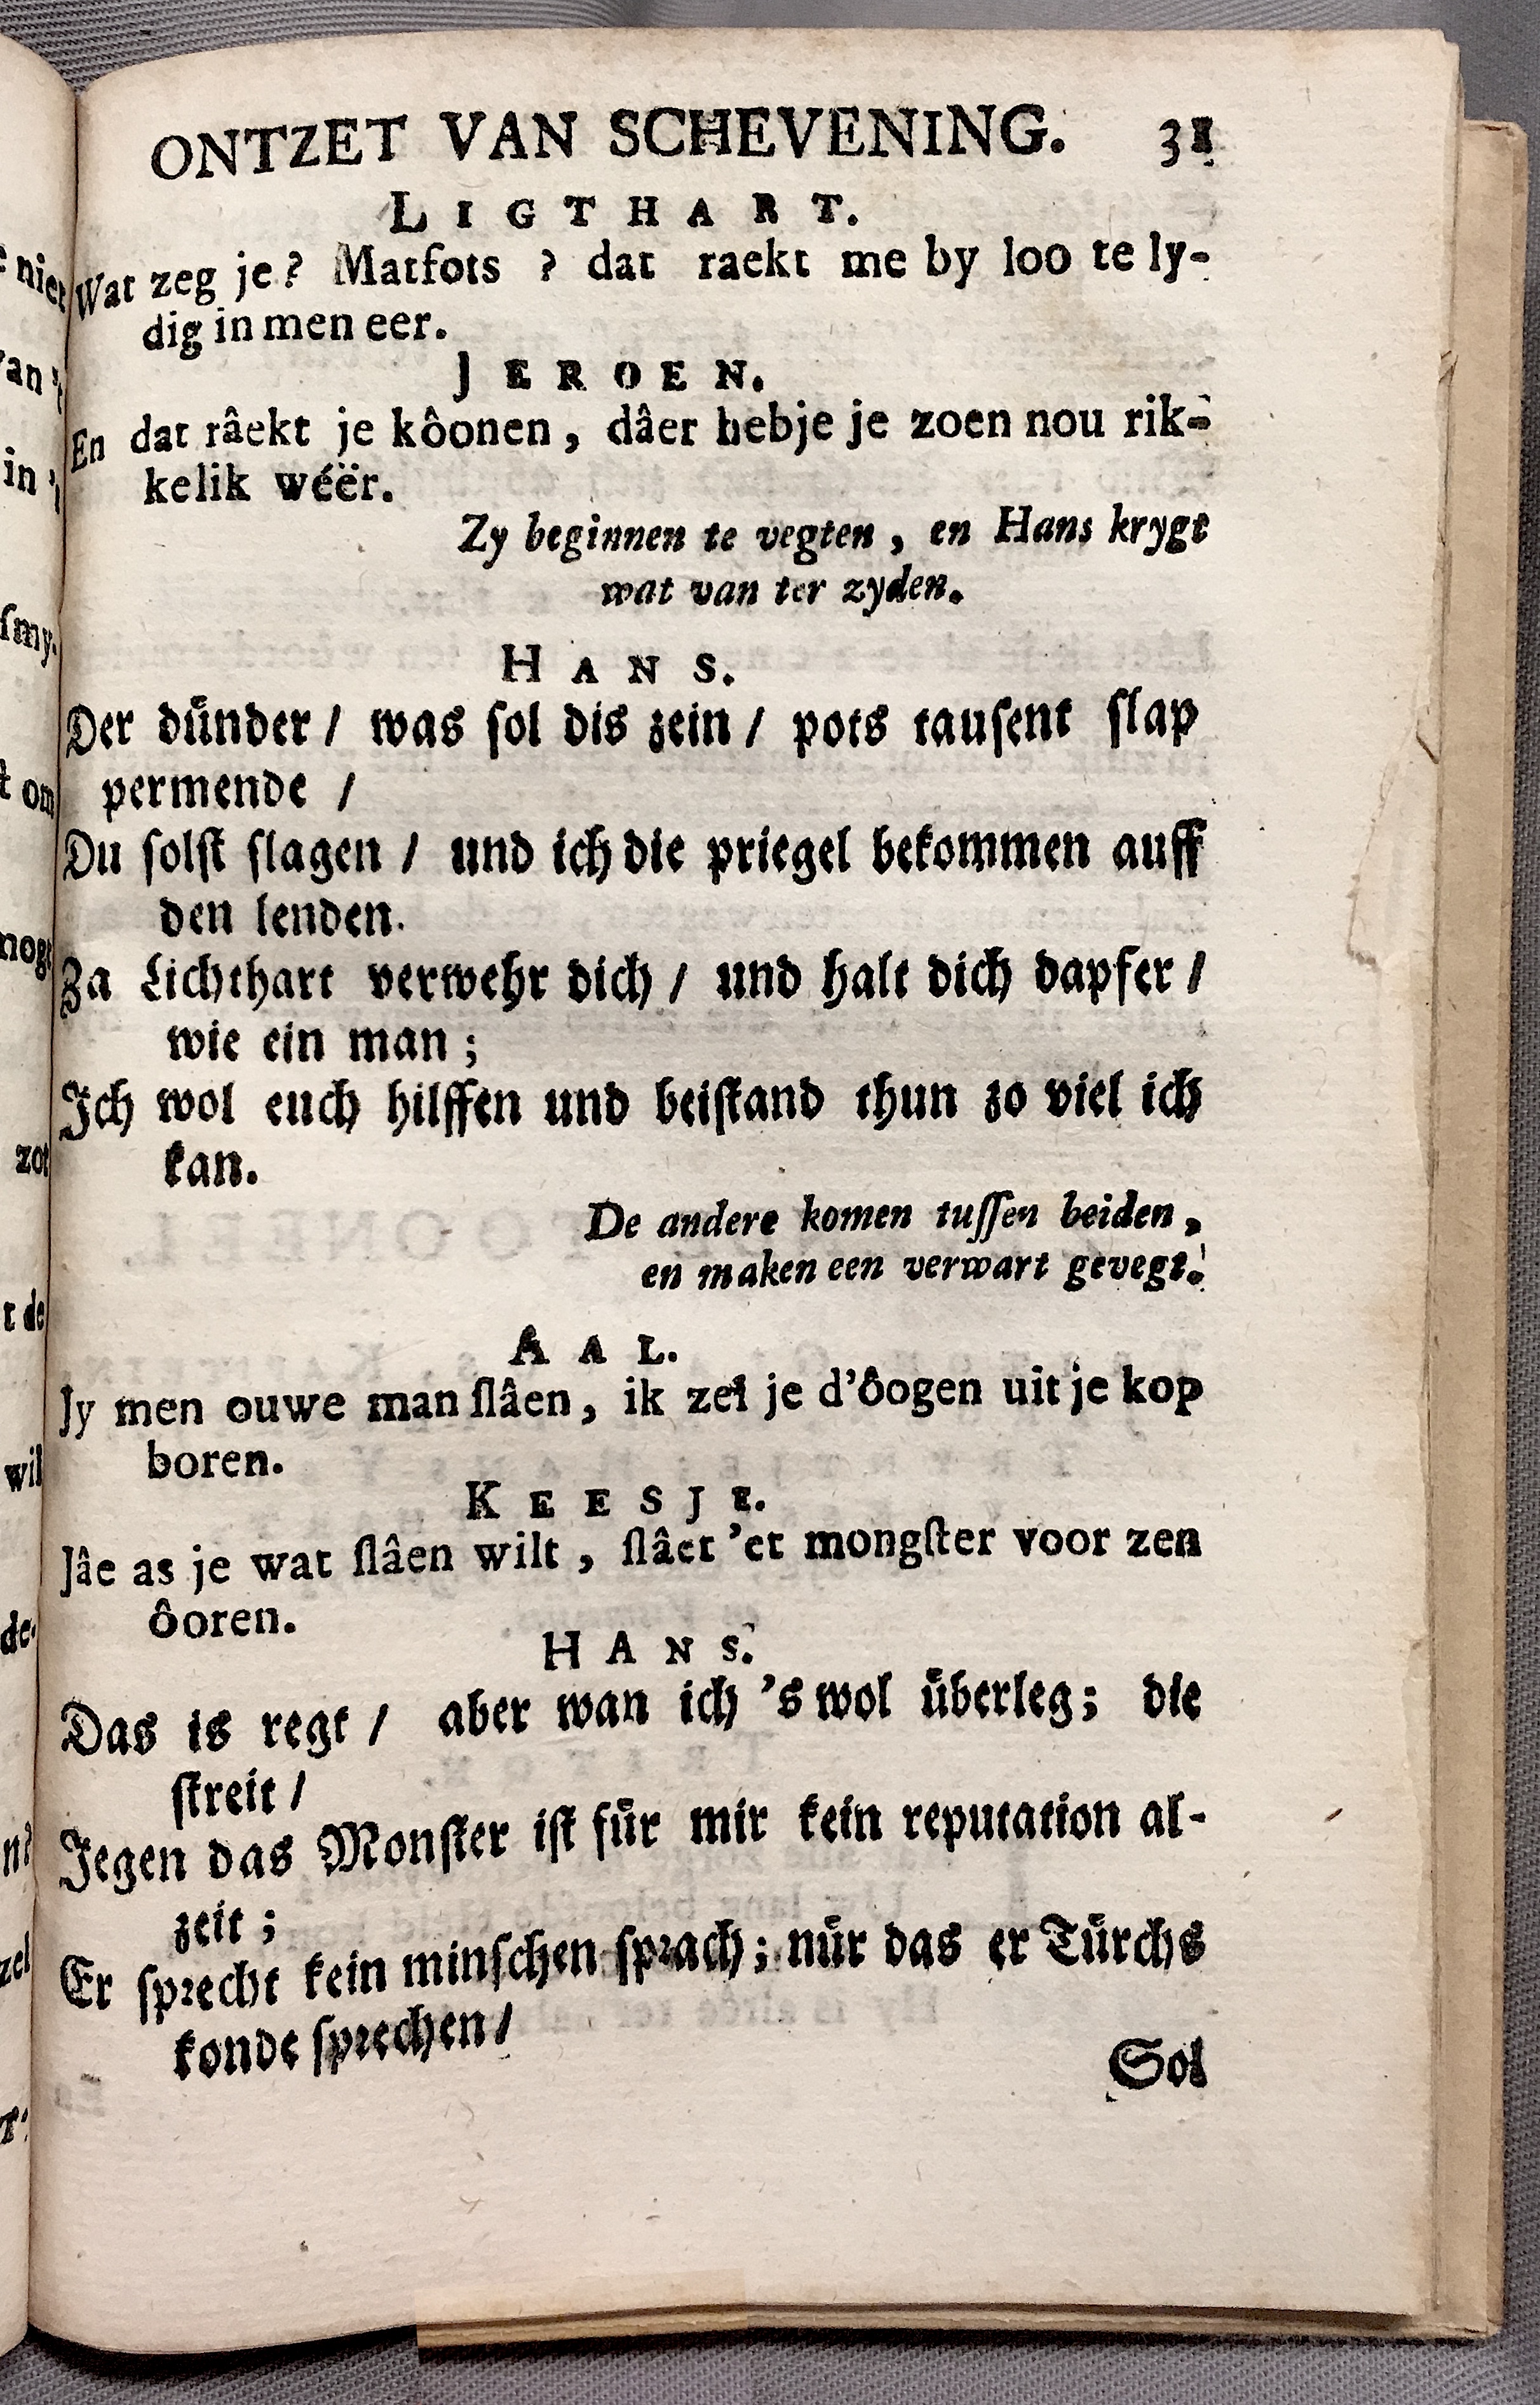 ONTZET VAN SCHEVENING. 31
LIGTHART.
Wat zeg je? Matfots ? dat raekt me by loo te ly-
dig in men eer.
JEROEN.
En dat râekt je kôonen, dâer hebje je zoen nou rik-
kelik wéër.
Zy beginnen te vegten, en Hans krygt
wat van ter zyden.
HANS.
Der dünder / was sol dis zein / pots tausent slap
permende /
Du solst slagen / und ich die priegel bekommen auff
den lenden.
Za Lichthart verwehr dich / und halt dich dapfer /
wie ein man ;
Ich wol euch hilffen und beistand thun zo viel ich
kan.
De andere komen tussen beiden,
en maken een verwart gevegt.
AAL.
Jy men ouwe man slâen, ik zel je d'ôogen uit je kop
boren.
KEESJE.
Jâe as je wat slâen wilt, slâet 'et mongster voor zen
ôoren.
HANS.
Das is regt / aber wan ich 's wol überleg; die
streit /
Jegen das Monster ist für mir kein reputation al-
zeit ;
Er sprecht kein minschen sprach; nür das er Türchs
konde sprechen /
Sol